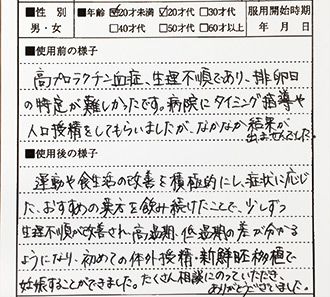 ■性別 ■年齢 ☑20才未満 ☑20才代 □30才代 服用開始時期
男・女 □40才代 □50才代 □60才以上 年 月 日
■使用前の様子
高プロラクチン血症、生理不順であり、排卵日
の特定が難しかったです。病院にタイミング指導や
人口授精をしてもらいましたが、なかなか結果が
出ませんでした。
■使用後の様子
運動や食生活の改善を積極的にし、症状に応じ
た、おすすめの漢方を飲み続けたことで、少しずつ
生理不順が改善され、高温期、低温期の差が分かる
ようになり、初めての体外授精・新鮮胚移植で
妊娠することができました。たくさん相談にのっていただき、
ありがとうございました。